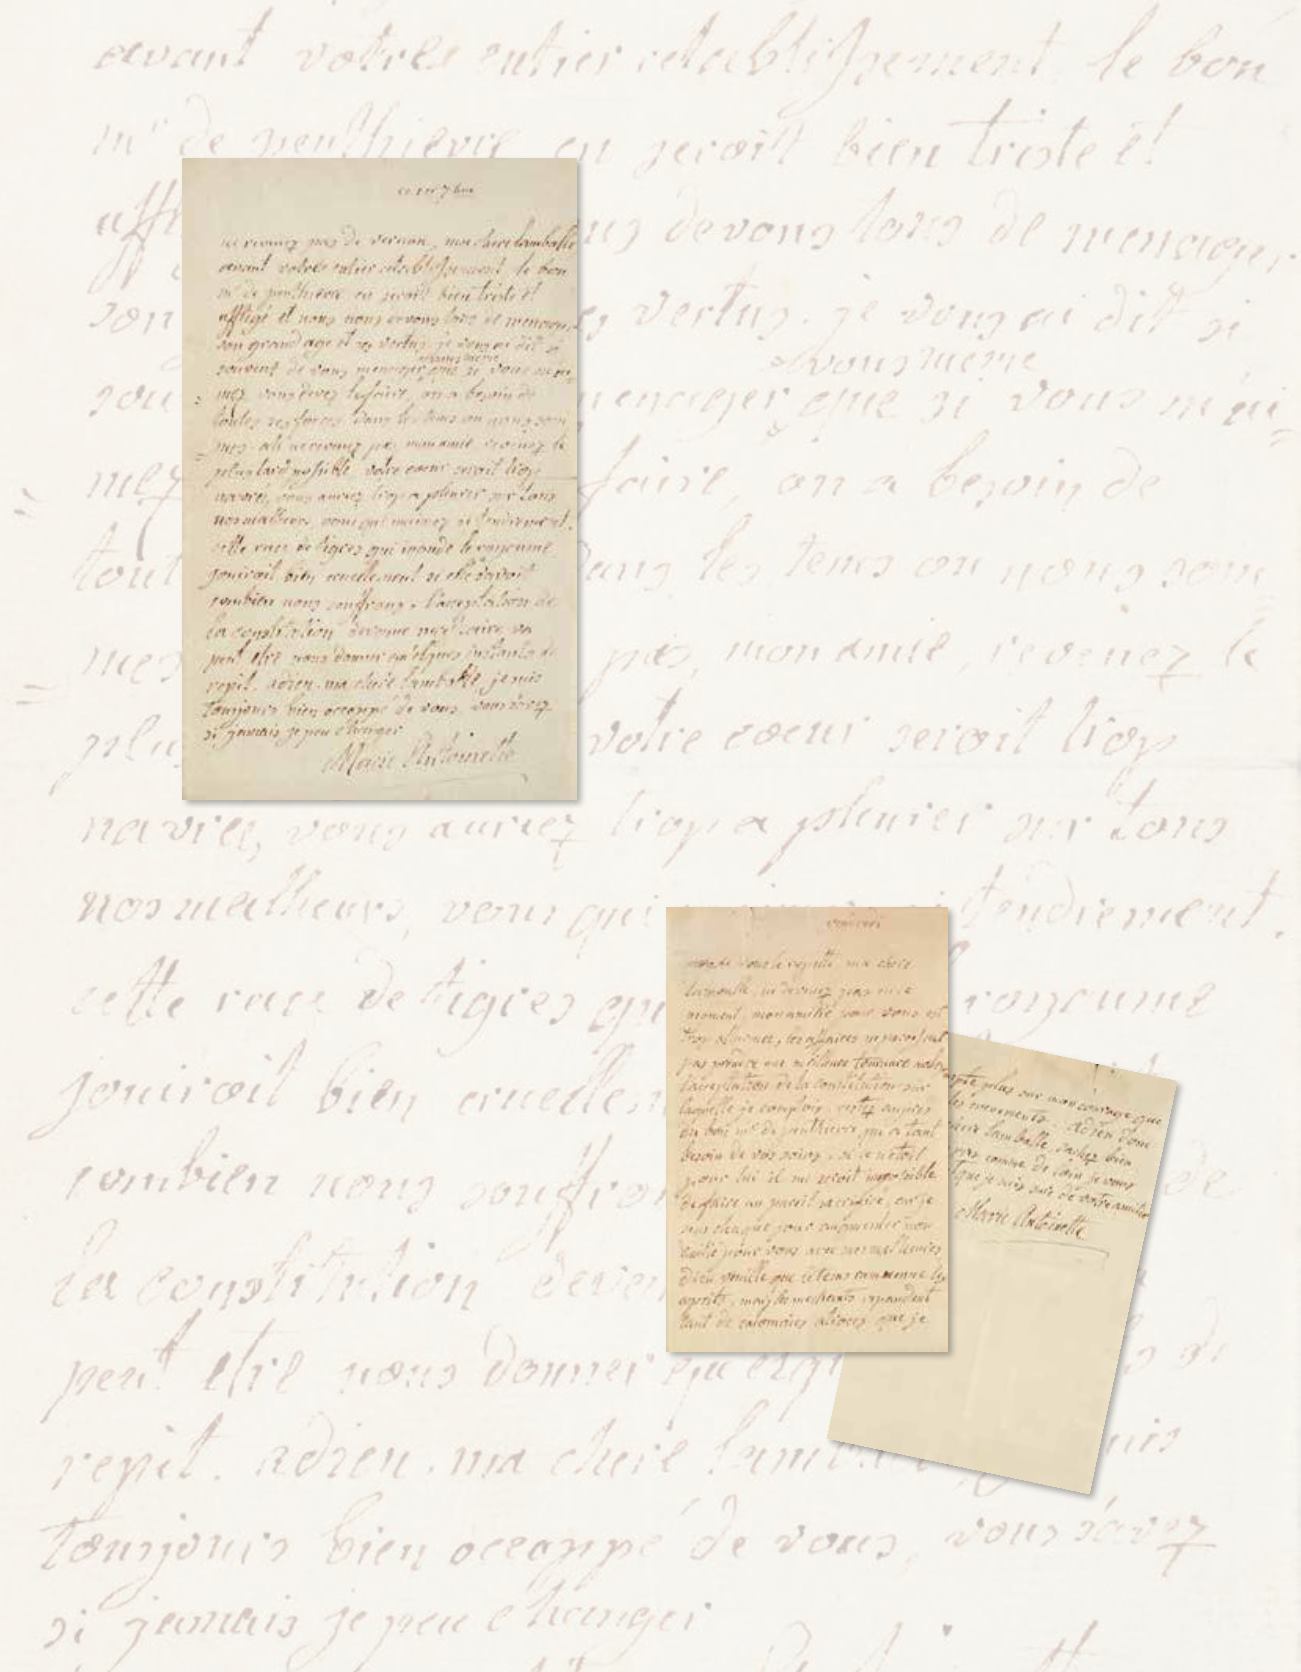 avant votres entier retablissement le bon
mr de penthievre en seroit bien triste et
devons tous de menager
son vertus. je vous ai dit si
vous meme
menager que si vous m'ai=
mez faire, on a besoin de
tout dans les tems ou nous som
=mes pas, mon amie revenez le
plus votre coeur seroit trop
navrée, vous auriez trop a pleurer sur tous
nos malheurs, vous qui tendrement.
cette race de tigres qui royaume
jouiroit bien cruellem
combien nous souffron de
la constitution deven
peut etre nous donner quelqu
repit. adieu. ma chere lamb
tousjours bien occoppé de vous, vous savez
si jamais je peu changer
ne revenez pas de vernon, ma chere lamballe
avant votres entier retablissement le bon
mr de penthievre en seroit bien triste et
affligé et nous nous devons tous de menager
son grand age et ses vertus. je vous ai dit si
vous meme
souvent de vous menager que si vous m'ai
=mez vous devez le faire, on a besoin de
toutes ses forces dans les tems ou nous som
=mes. ah ne revenez pas, mon amie revenez le
plus tard possible votre coeur seroit trop
navrée, vous auriez trop a pleurer sur tous
nos malheurs, vous qui m'aimez si tendrement.
cette race de tigres qui inonde le royaume
jouiroit bien cruellement si elle savoit
combien nous souffrons. l'acceptation de
la constitution devenue necessaire, va
peut etre nous donner quelques instants de
repit. adieu. ma chere lamballe, je suis
tousjours bien occoppé de vous, vous savez
si jamais je peu changer
Marie Antoinette
vendredi
vous le repette, ma chere
lamballe, ne revenez pas en ce
moment, mon amitié pour vous est
trop allarmee, les affaires ne paroissent
pas prendre une meilleure tournure malgré
l'acceptation de la constitution sur
laquelle je comptois. restez aupres
du bon mr de penthievre qui a tant
besoin de vos soins, si ce n'etoit
pour lui il me seroit impossible
de faire un pareil sacrifice, car je
sens chaque jour augmenter mon
amitié pour vous avec mes malheurs
dieu veuille que le tems ramenne les
esprits, mais les mechants repandent
tant de calomnies atroces que je
compte plus sur mon courage que
les evenements. adieu donc
chere lamballe, sachez bien
que de pres comme de loin je vous
que je suis sur de votre amitié
Marie Antoinette